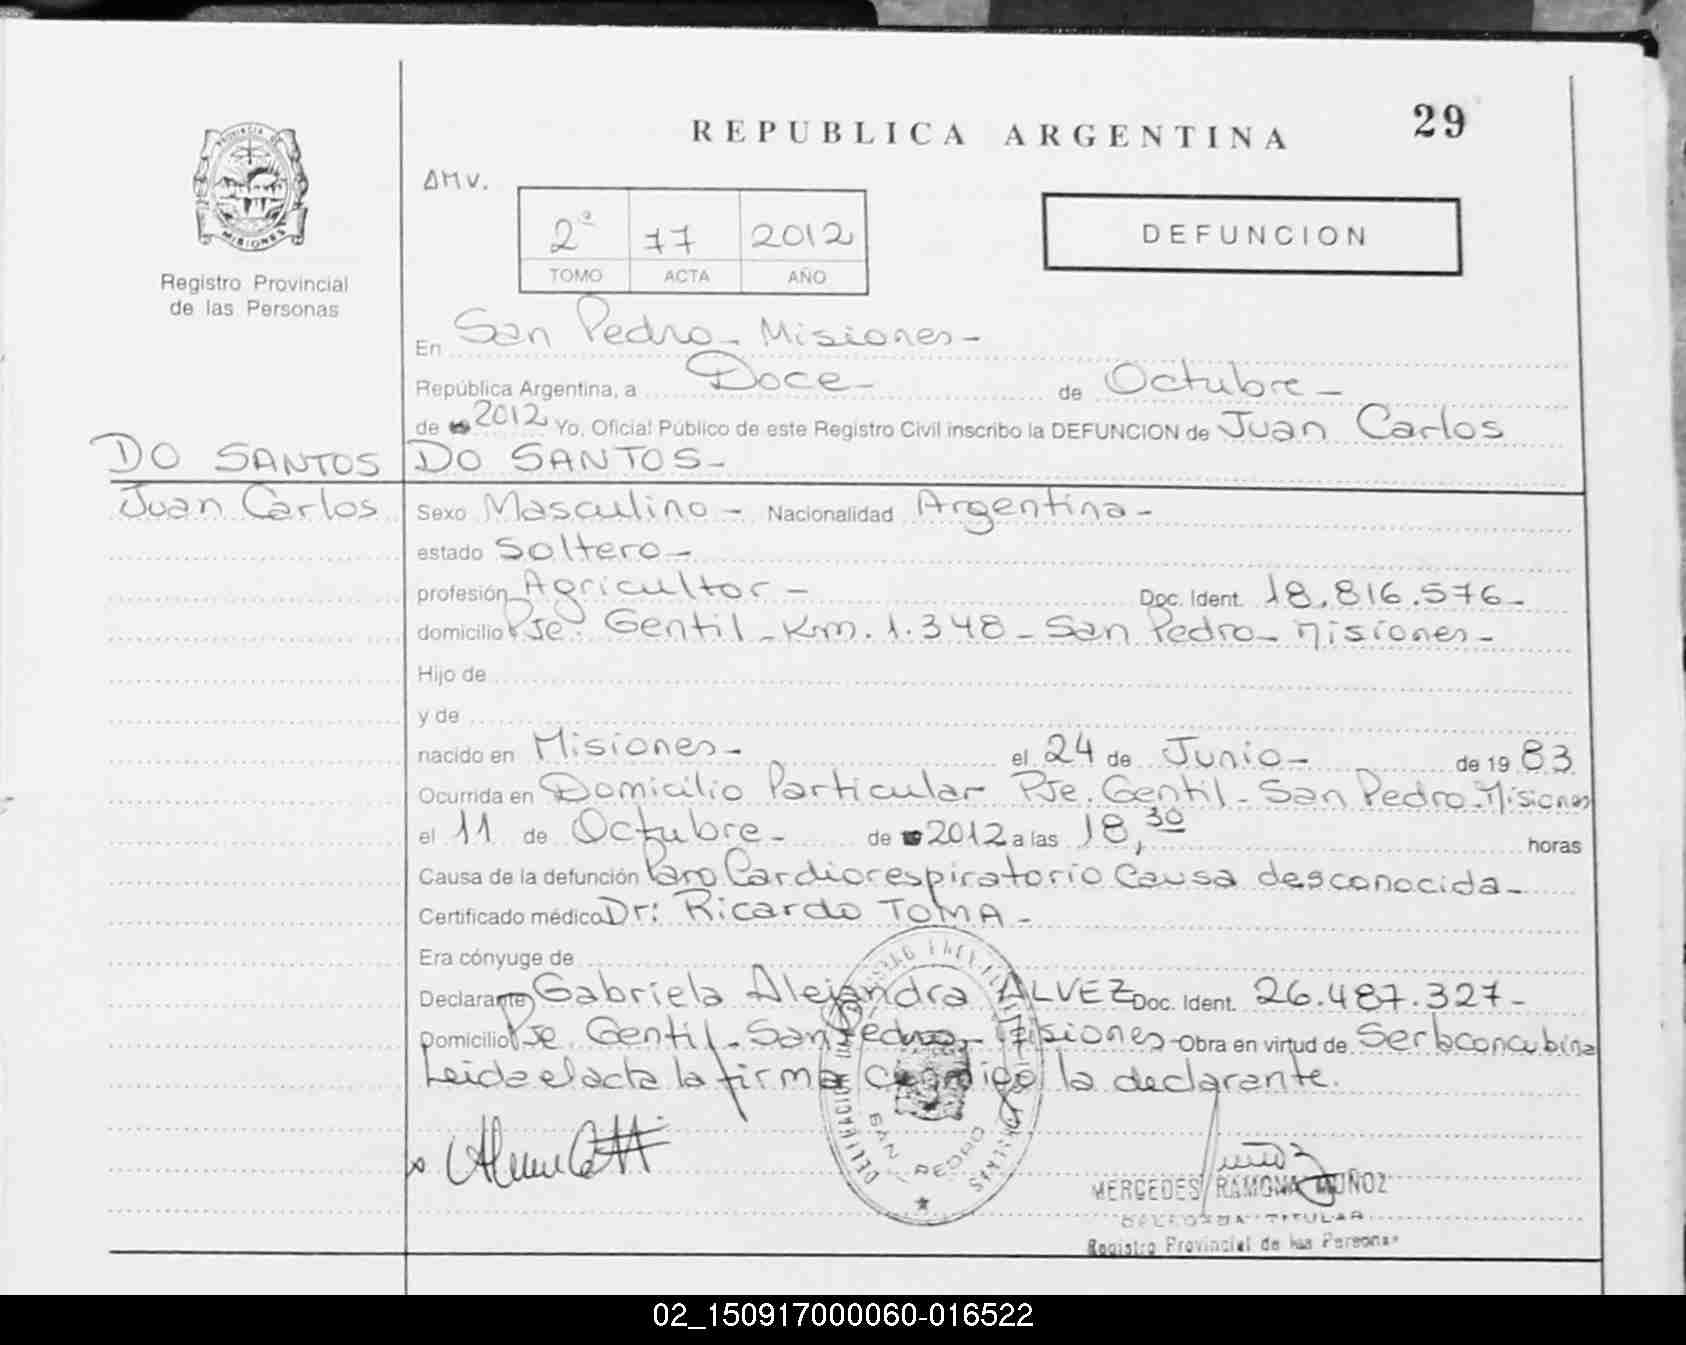 29
REPUBLICA ARGENTINA
AMV.
2ª 77 2012
TOMO ACTA AÑO
DEFUNCION
PROVINCIA DE
MISIONES
Registro Provincial
de las Personas
En San Pedro - Misiones -
República Argentina, a Doce - de Octubre -
de 2012 Yo, Oficial Público de este Registro Civil inscribo la DEFUNCION de Juan Carlos
DO SANTOS DO SANTOS -
Juan Carlos Sexo Masculino - Nacionalidad Argentina -
estado Soltero -
profesión Agricultor - Doc. Ident. 18.816.576 -
domicilio Pje. Gentil - Km. 1.348 - San Pedro - Misiones -
Hijo de
y de
nacido en Misiones - el 24 de Junio - de 19 83
Ocurrida en Domicilio Particular Pje. Gentil - San Pedro - Misiones
el 11 de Octubre - de 2012 a las 18,30 horas
Causa de la defunción Paro Cardiorespiratorio Causa desconocida -
Certificado médico Dr: Ricardo TOMA -
Era cónyuge de
Declarante Gabriela Alejandra ALVEZ Doc. Ident. 26.487.327 -
Domicilio Pje Gentil - San Pedro - Misiones - Obra en virtud de Ser la concubina
Leida el acta la firma conmigo la declarante.
SAN PEDRO
MERCEDES RAMONA MUÑOZ
DELEGADA TITULAR
Registro Provincial de las Personas
02_150917000060-016522